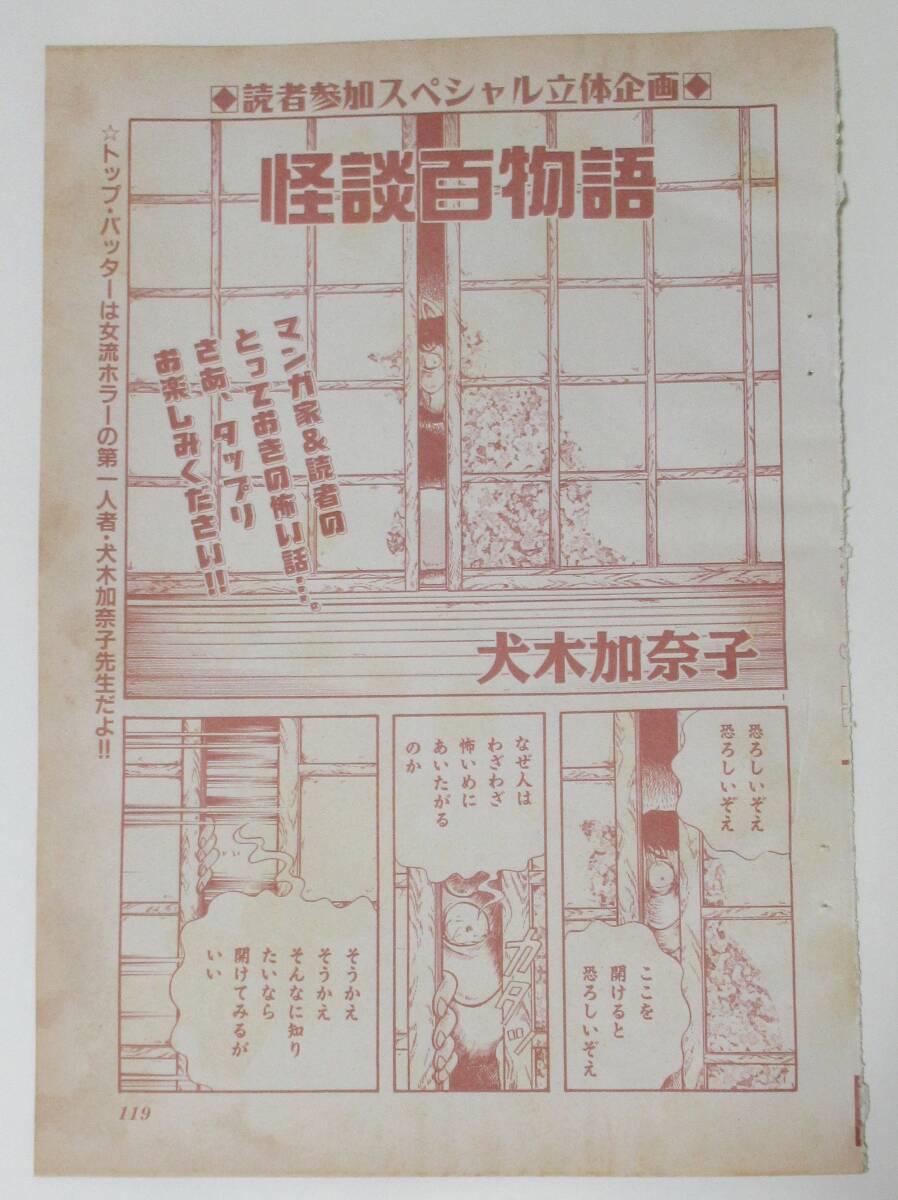 ◆読者参加スペシャル立体企画◆
怪談百物語
マンガ家&読者の
とっておきの怖い話…。
さあ、タップリ
お楽しみください!!
☆トップ・バッターは女流ホラーの第一人者・犬木加奈子先生だよ!!
犬木加奈子
1
恐ろしいぞえ
恐ろしいぞえ
ここを
開けると
恐ろしいぞえ
なぜ人は
わざわざ
怖いめに
あいたがる
のか
カタッ
そうかえ
そうかえ
そんなに知り
たいなら
開けてみるが
いい
119